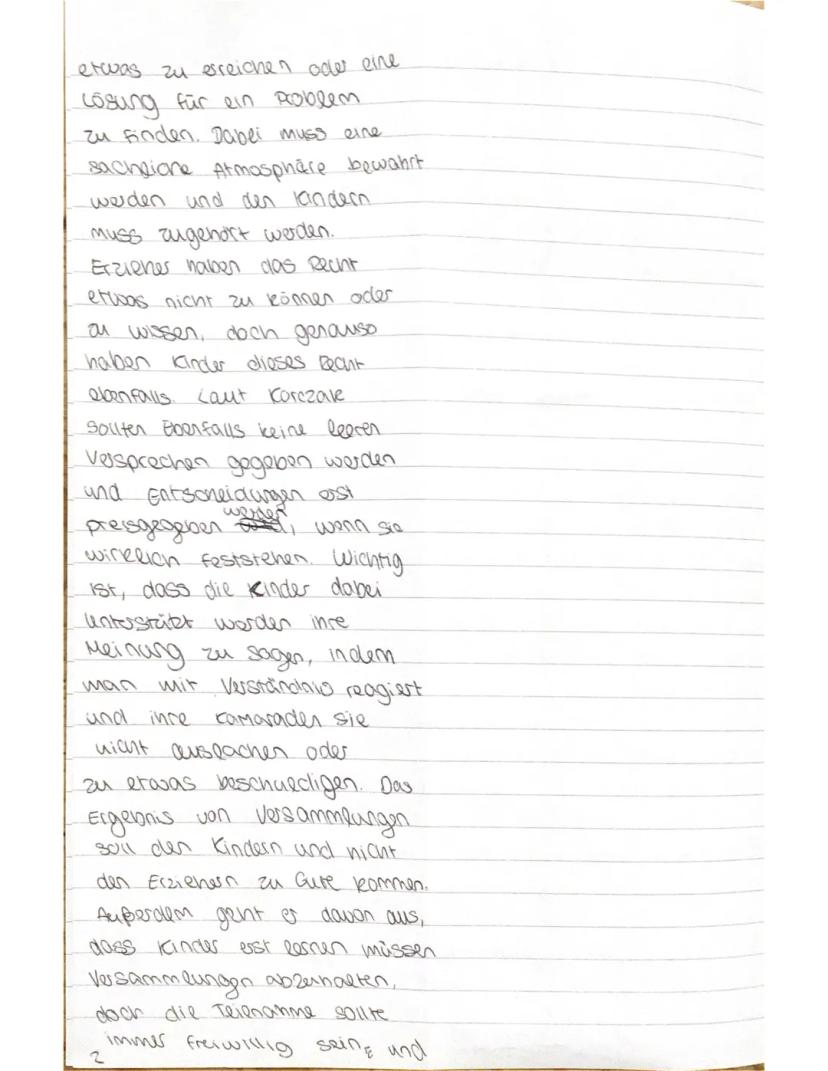 etwas zu erreichen oder eine
Lösung für ein Problem
zu finden. Dabei muss eine
sachliche Atmosphäre bewahrt
werden und den Kindern
muss zugehört werden.
Erzieher haben das Recht
etwas nicht zu können oder
zu wissen, doch genauso
haben Kinder dieses Recht
ebenfalls. Laut Korczak
sollten Ebenfalls keine leeren
Versprechen gegeben werden
und Entscheidungen erst
preisgegeben werden, wenn sie
wirklich feststehen. Wichtig
ist, dass die Kinder dabei
unterstützt werden ihre
Meinung zu sagen, indem
man mit Verständnis reagiert
und ihre Kamaraden sie
nicht auslachen oder
zu etwas beschuldigen. Das
Ergebnis von Versammlungen
soll den Kindern und nicht
den Erziehern zu Gute kommen.
Außerdem geht er davon aus,
dass Kinder erst lernen müssen
Versammlungen abzuhalten,
doch die Teilnahme sollte
immer freiwillig sein, und
2